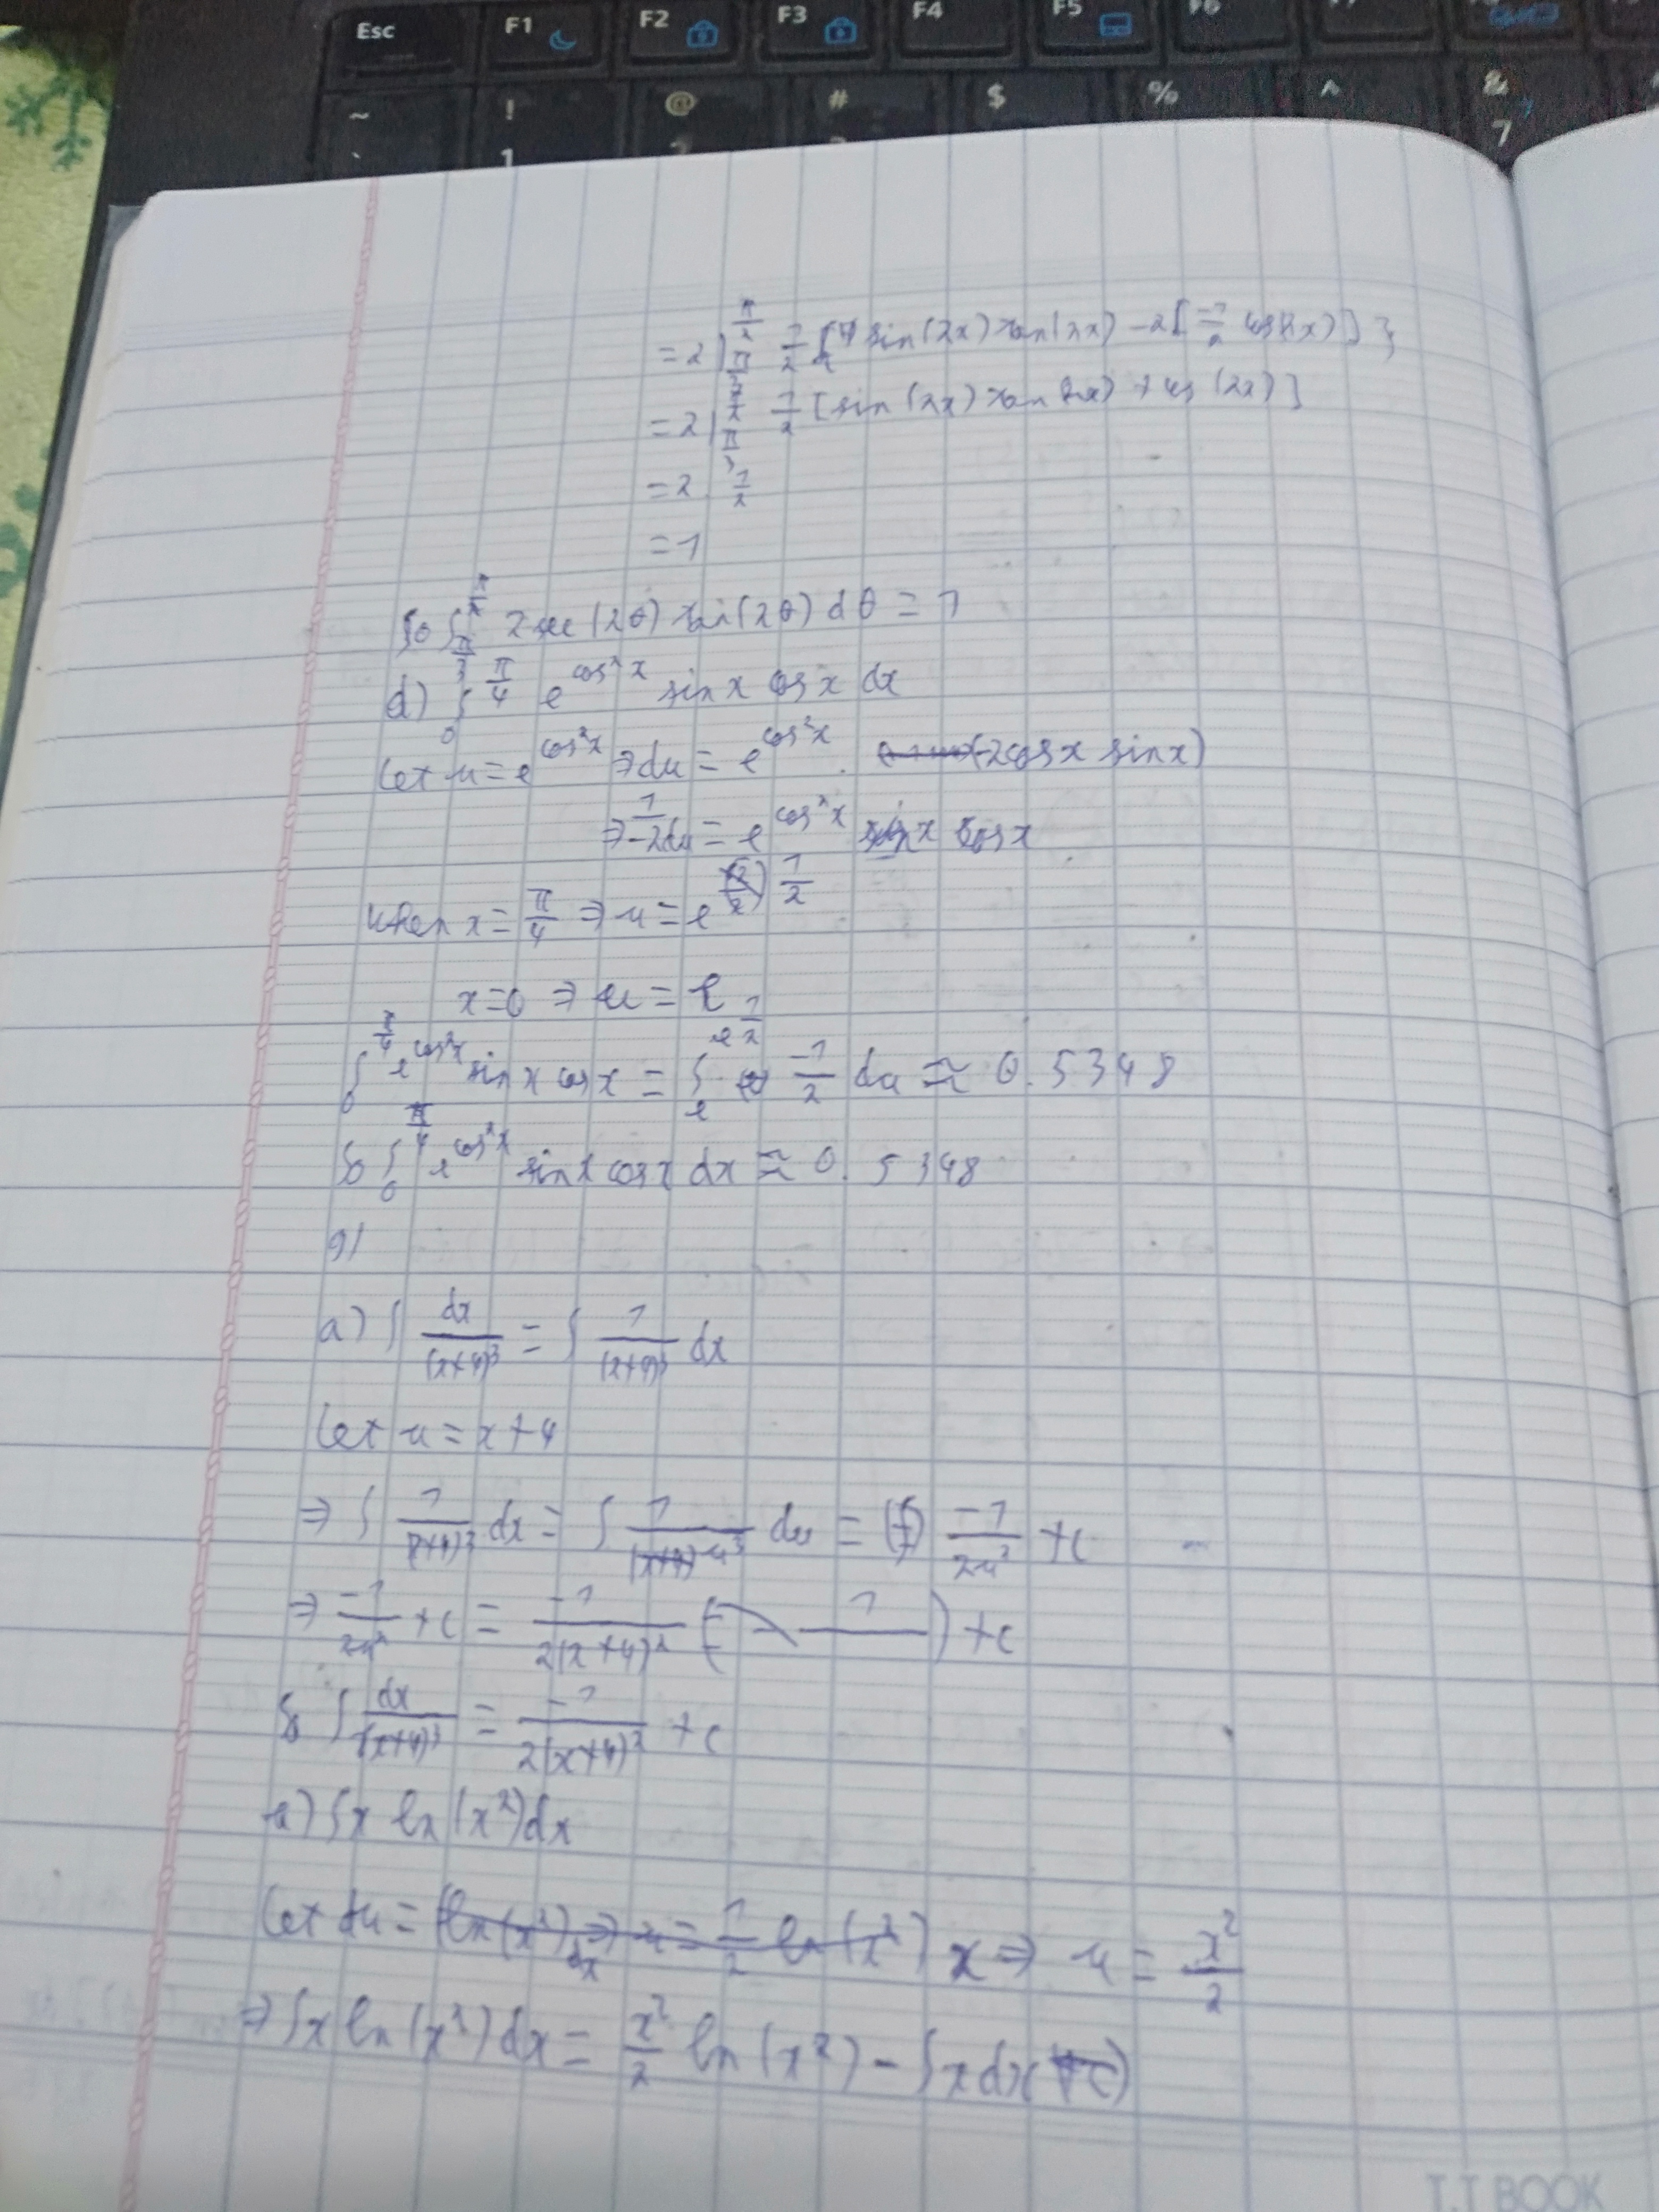 Esc F1 F2 F3 F4 F5 F6
~ ! @ # $ % ^ &
` 1 2 3 7
= 2 |_{π/3}^{π/2} 1/2 { sin(2x) tan(2x) - 2[-1/2 cos(2x)] }
= 2 |_{π/3}^{π/2} 1/2 [sin(2x) tan(2x) + cos(2x)]
= 2 . 1/2
= 1
So ∫_{π/3}^{π/2} 2 sec(2θ) tan(2θ) dθ = 1
d) ∫_0^{π/4} e^{cos²x} sin x cos x dx
Let u = e^{cos²x} ⇒ du = e^{cos²x} . (-2cos x sin x)
⇒ 1/-2 du = e^{cos²x} sin x cos x
When x = π/4 ⇒ u = e^{1/2}
x = 0 ⇒ u = e
∫_0^{π/4} e^{cos²x} sin x cos x = ∫_e^{e^{1/2}} -1/2 du ≈ 0.5348
So ∫_0^{π/4} e^{cos²x} sin x cos x dx ≈ 0.5348
9/
a) ∫ dx/(x+4)³ = ∫ 1/(x+4)³ dx
Let u = x+4
⇒ ∫ 1/(x+4)³ dx = ∫ 1/u³ du = -1/2u² + c
⇒ -1/2u² + c = -1/2(x+4)² + c
So ∫ dx/(x+4)³ = -1/2(x+4)² + c
e) ∫ x ln(x²) dx
Let du = x ⇒ u = x²/2
⇒ ∫ x ln(x²) dx = x²/2 ln(x²) - ∫ x dx
T.T BOOK